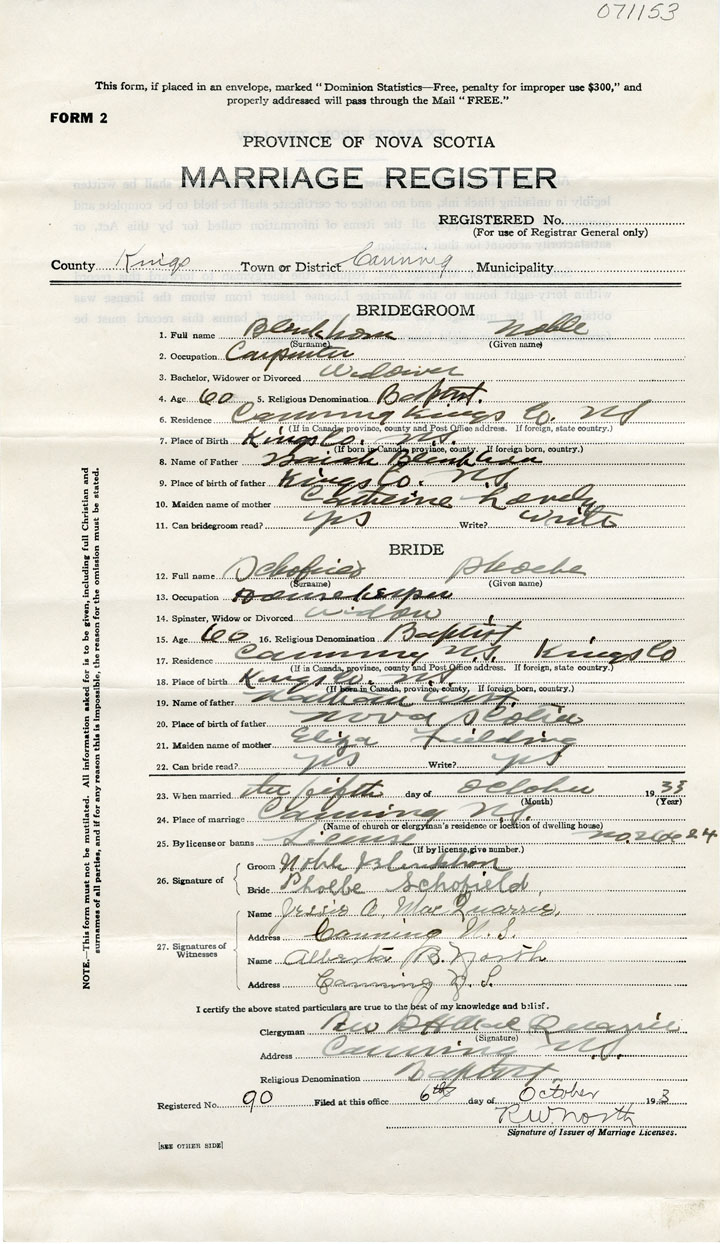 071153
This form, if placed in an envelope, marked "Dominion Statistics—Free, penalty for improper use $300," and
properly addressed will pass through the Mail "FREE."
FORM 2
PROVINCE OF NOVA SCOTIA
MARRIAGE REGISTER
REGISTERED No.
(For use of Registrar General only)
County Kings Town or District Canning Municipality
BRIDEGROOM
1. Full name Blenkhorn Noble
(Surname) (Given name)
2. Occupation Carpenter
3. Bachelor, Widower or Divorced Widower
4. Age 60 5. Religious Denomination Baptist.
6. Residence Canning Kings Co. NS
(If in Canada, province, county and Post Office address. If foreign, state country.)
7. Place of Birth Kings Co. N.S.
(If born in Canada, province, county. If foreign born, country.)
8. Name of Father Blenkhorn
9. Place of birth of father Kings Co. NS
10. Maiden name of mother Catherine Lovely
11. Can bridegroom read? yes Write? write
BRIDE
12. Full name Schofield Phoebe
(Surname) (Given name)
13. Occupation Housekeeper
14. Spinster, Widow or Divorced widow
15. Age 60 16. Religious Denomination Baptist
17. Residence Canning N.S. Kings Co
(If in Canada, province, county and Post Office address. If foreign, state country.)
18. Place of birth Kings Co. N.S.
(If born in Canada, province, county, If foreign born, country.)
19. Name of father
20. Place of birth of father Nova Scotia
21. Maiden name of mother Eliza Fielding
22. Can bride read? yes Write? yes
23. When married the fifth day of October 1933
(Month) (Year)
24. Place of marriage Canning N.S.
(Name of church or clergyman's residence or location of dwelling house)
25. By license or banns License no.
(If by license, give number.)
26. Signature of
Groom Noble Blenkhorn
Bride Phoebe Schofield,
27. Signatures of Witnesses
Name Jessie A. MacQuarrie,
Address Canning N.S.
Name Alberta B. North
Address Canning N.S.
I certify the above stated particulars are true to the best of my knowledge and belief.
Clergyman Rev MacQuarrie
(Signature)
Address Canning N.S.
Religious Denomination Baptist
Registered No. 90 Filed at this office 6th day of October 193
R.W. North
Signature of Issuer of Marriage Licenses.
[SEE OTHER SIDE]
NOTE.—This form must not be mutilated. All information asked for is to be given, including full Christian and
surnames of all parties, and if for any reason this is impossible, the reason for the omission must be stated.